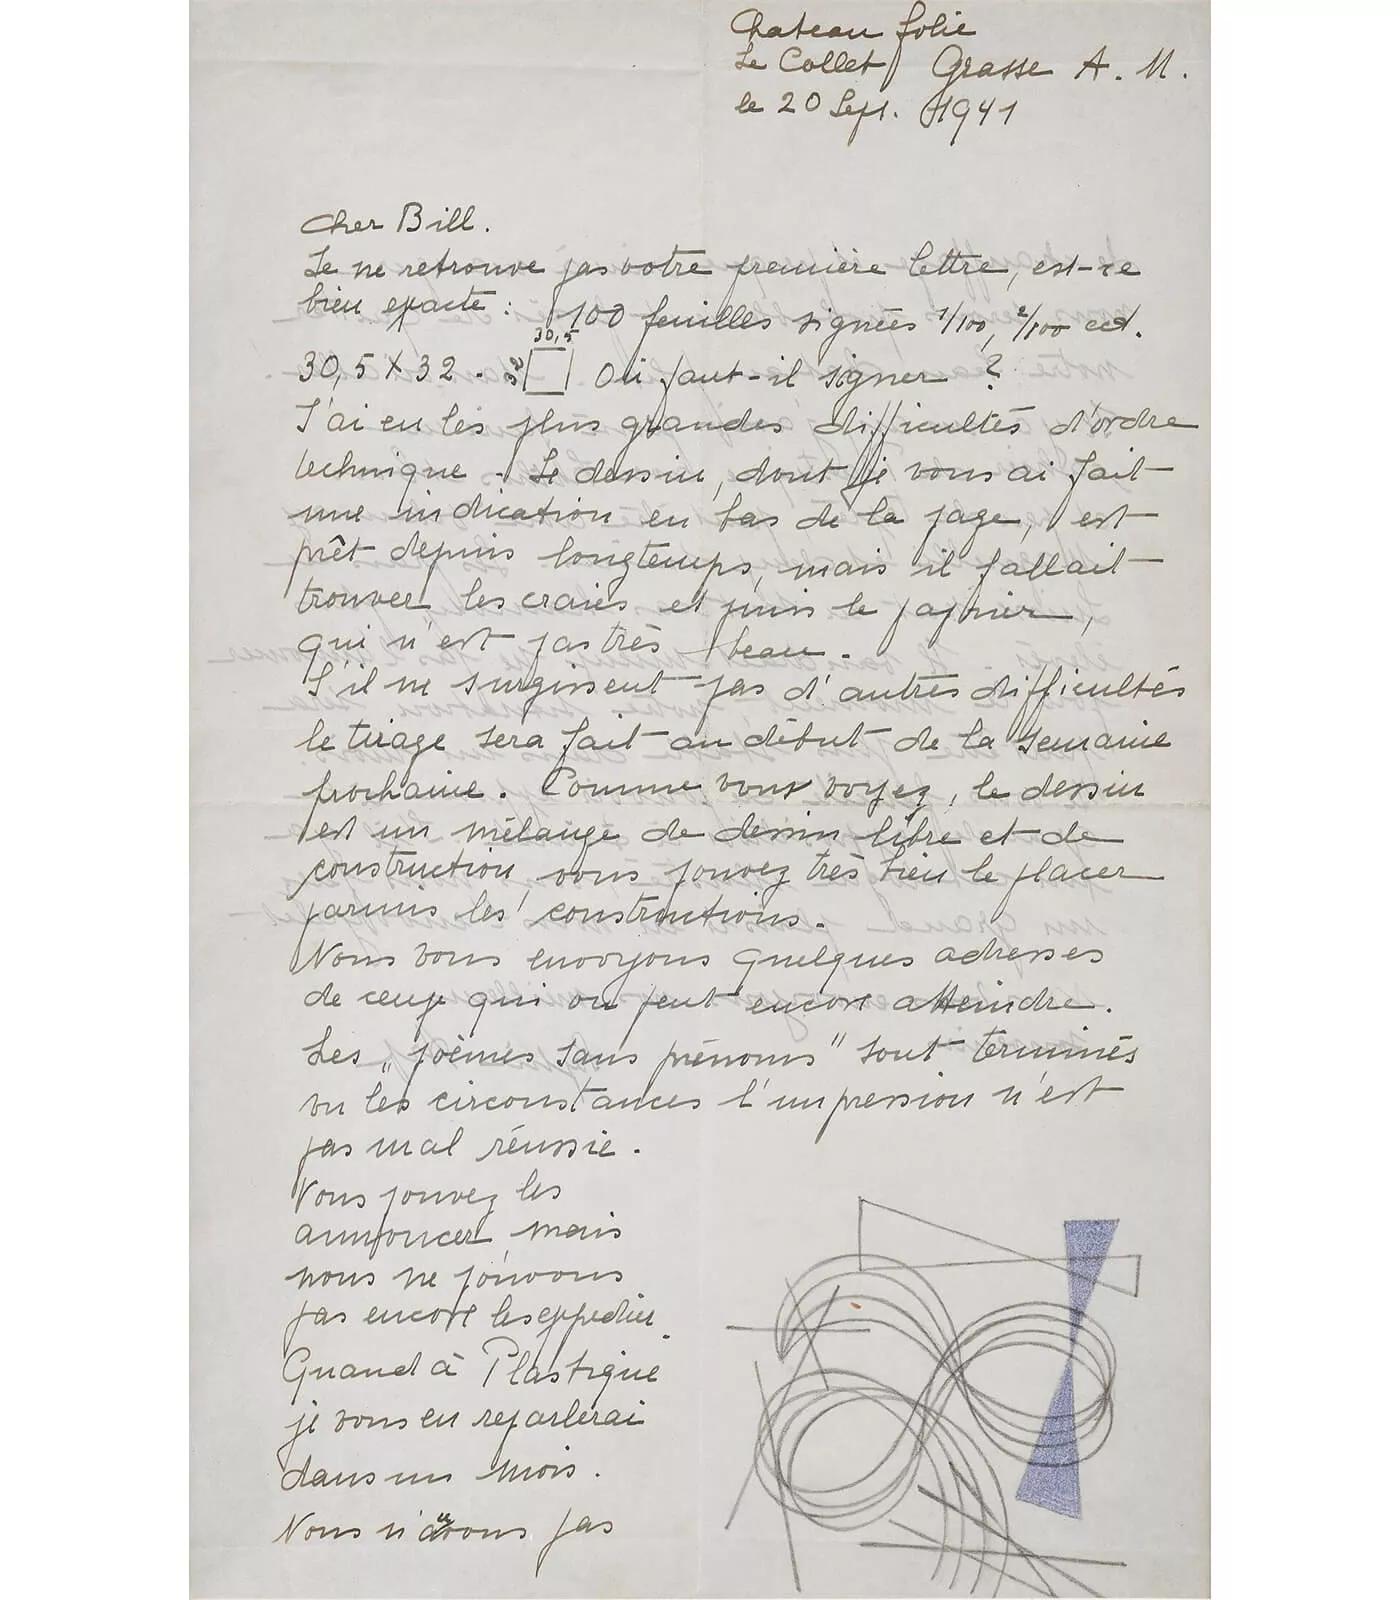 Chateau folie
Le Collet Grasse A. M.
le 20 Sept. 1941
Cher Bill.
Je ne retrouve pas votre première lettre, est-ce
bien exacte : 100 feuilles signées 1/100, 2/100 ect.
30,5
30,5 X 32 - 32 Où faut-il signer ?
J'ai eu les plus grandes difficultés d'ordre
technique. Le dessin, dont je vous ai fait
une indication en bas de la page, est
prêt depuis longtemps, mais il fallait
trouver les craies et puis le papier,
qui n'est pas très beau.
S'il ne surgissent pas d'autres difficultés
le tirage sera fait au début de la semaine
prochaine. Comme vous voyez, le dessin
est un mélange de dessin libre et de
construction, vous pouvez très bien le placer
parmis les constructions.
Nous vous envoyons quelques adresses
de ceux qui on peut encore atteindre.
Les „poèmes sans prénoms" sont terminés
vu les circonstances l'impression n'est
pas mal réussie.
Vous pouvez les
annoncer, mais
nous ne pouvons
pas encore les expedier.
Quand à Plastique
je vous en reparlerai
dans un mois.
Nous n'avons pas